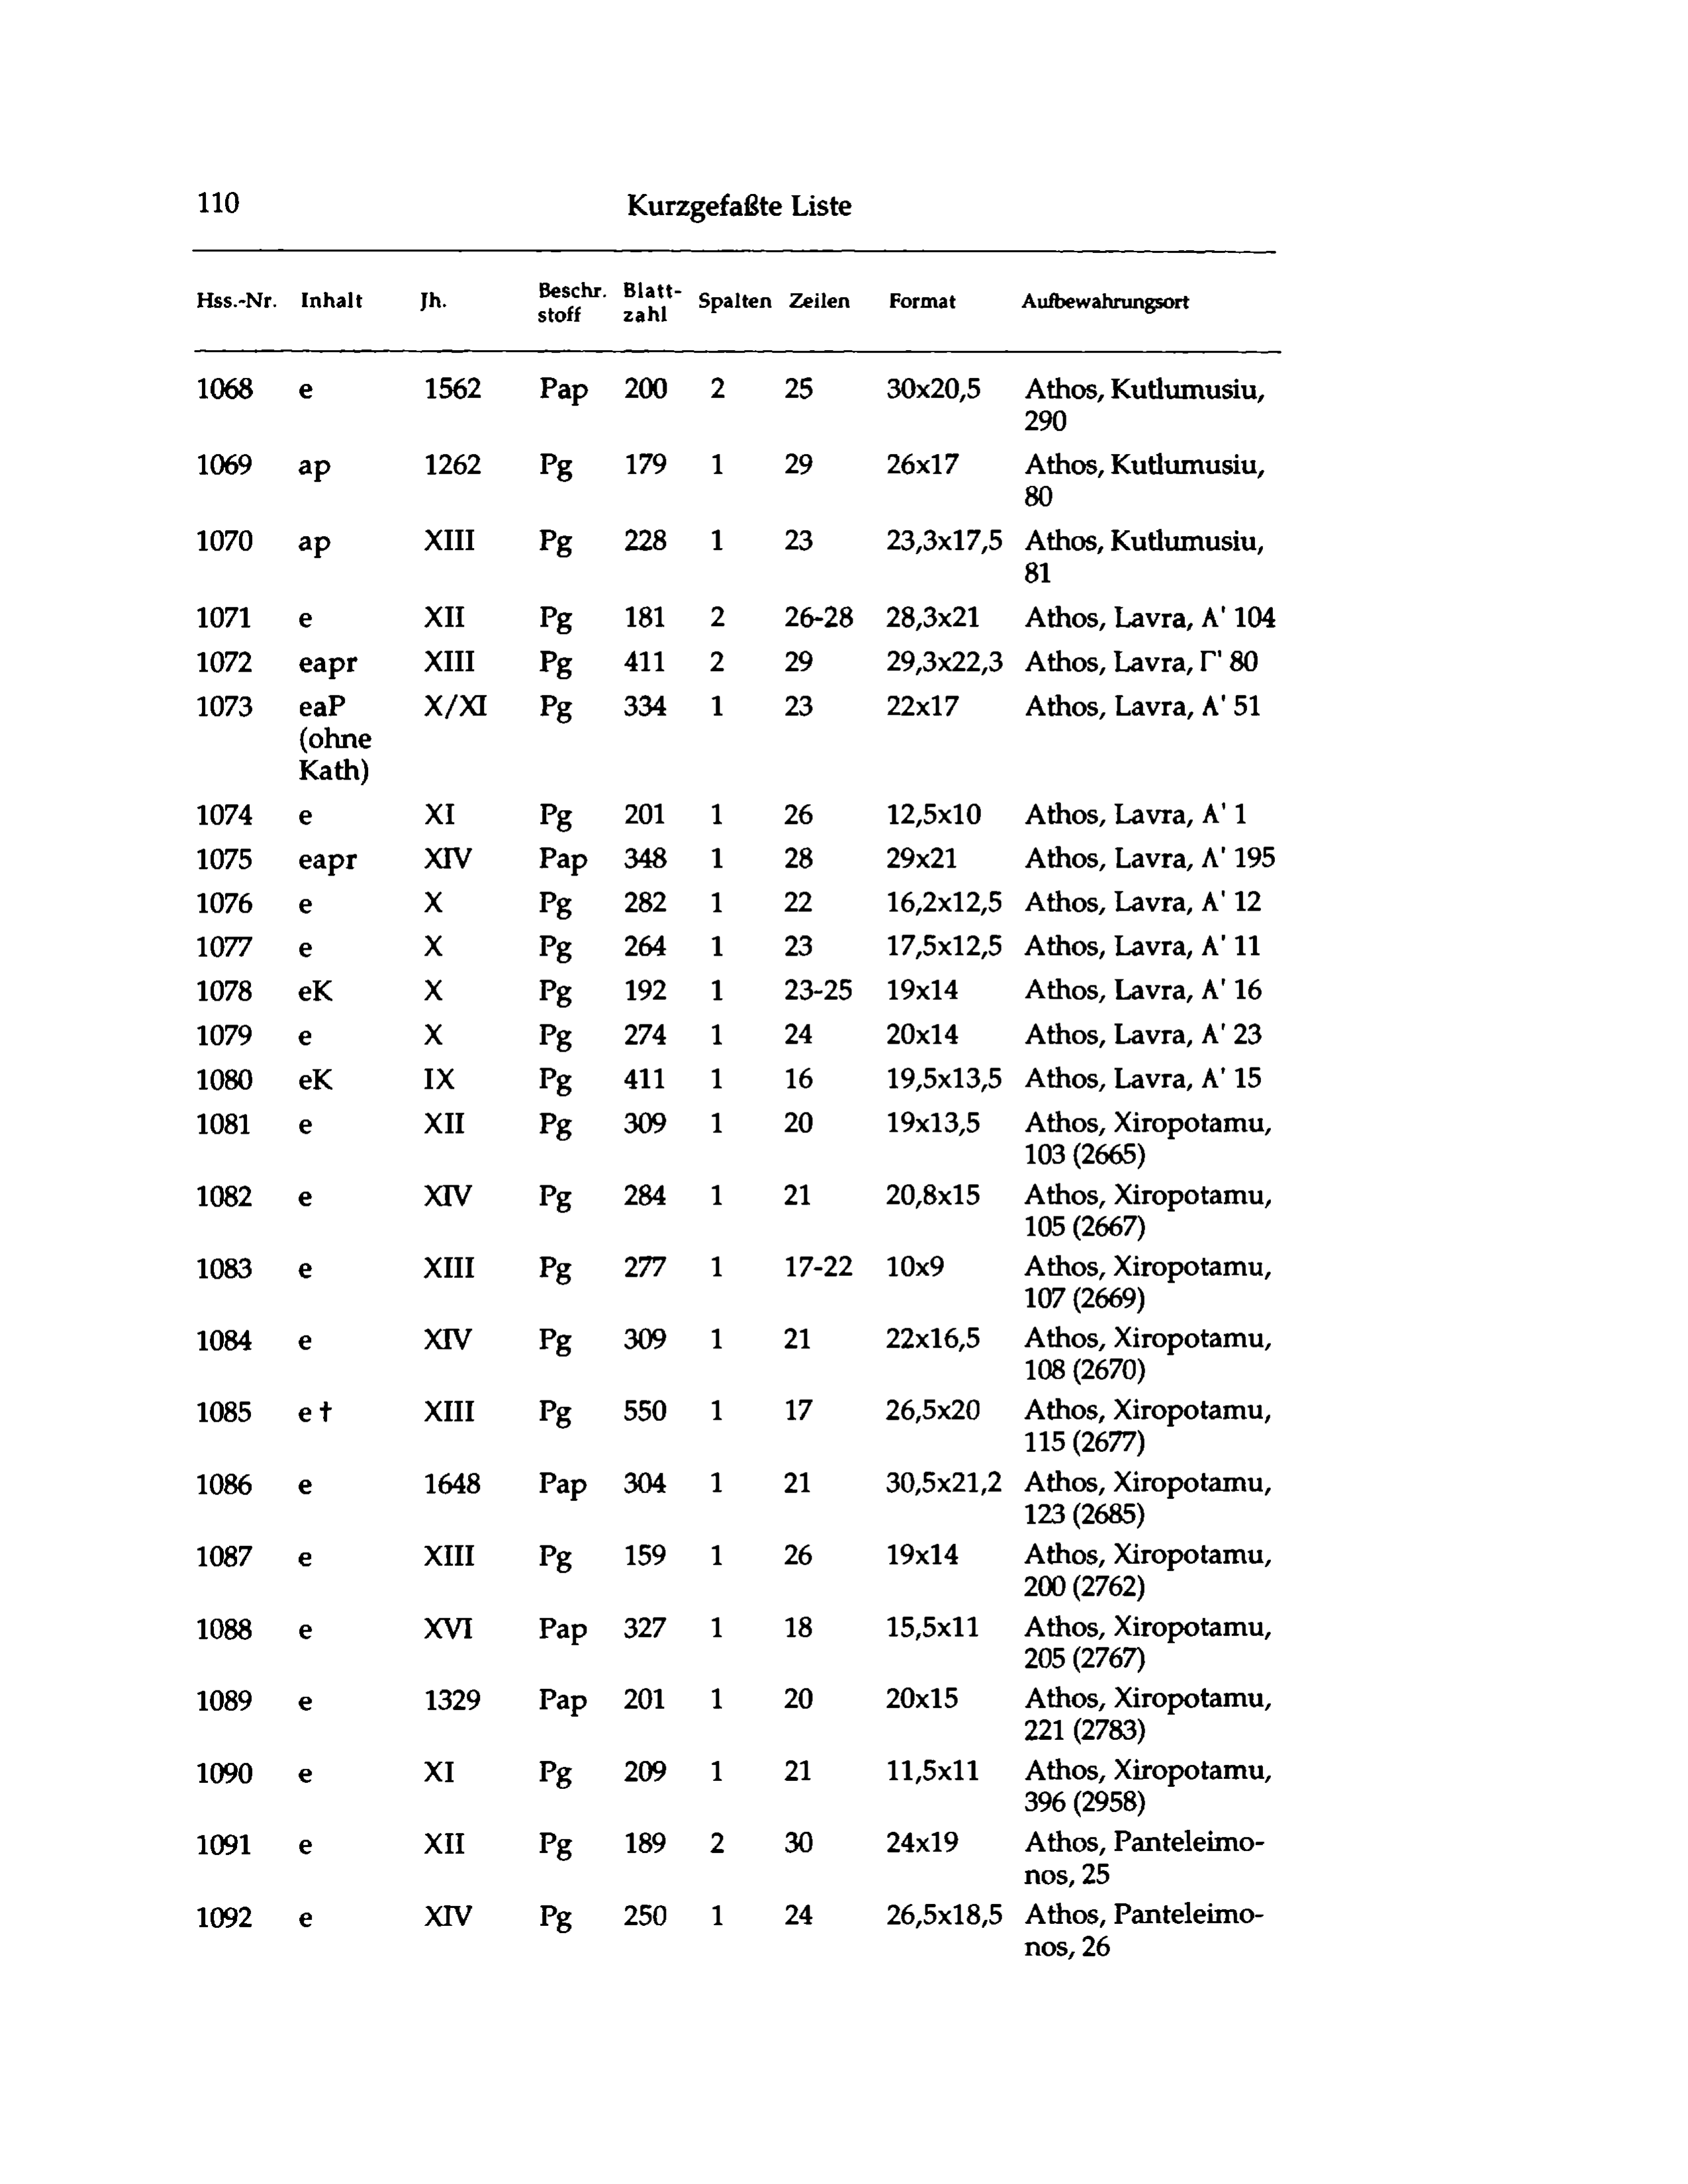 110 Kurzgefaßte Liste
Hss.-Nr. Inhalt Jh. Beschr. stoff Blatt- zahl Spalten Zeilen Format Aufbewahrungsort
1068 e 1562 Pap 200 2 25 30x20,5 Athos, Kutlumusiu,
290
1069 ap 1262 Pg 179 1 29 26x17 Athos, Kutlumusiu,
80
1070 ap XIII Pg 228 1 23 23,3x17,5 Athos, Kutlumusiu,
81
1071 e XII Pg 181 2 26-28 28,3x21 Athos, Lavra, Α' 104
1072 eapr XIII Pg 411 2 29 29,3x22,3 Athos, Lavra, Γ' 80
1073 eaP X/XI Pg 334 1 23 22x17 Athos, Lavra, Α' 51
(ohne
Kath)
1074 e XI Pg 201 1 26 12,5x10 Athos, Lavra, Α' 1
1075 eapr XIV Pap 348 1 28 29x21 Athos, Lavra, Λ' 195
1076 e X Pg 282 1 22 16,2x12,5 Athos, Lavra, Α' 12
1077 e X Pg 264 1 23 17,5x12,5 Athos, Lavra, Α' 11
1078 eK X Pg 192 1 23-25 19x14 Athos, Lavra, Α' 16
1079 e X Pg 274 1 24 20x14 Athos, Lavra, Α' 23
1080 eK IX Pg 411 1 16 19,5x13,5 Athos, Lavra, Α' 15
1081 e XII Pg 309 1 20 19x13,5 Athos, Xiropotamu,
103 (2665)
1082 e XIV Pg 284 1 21 20,8x15 Athos, Xiropotamu,
105 (2667)
1083 e XIII Pg 277 1 17-22 10x9 Athos, Xiropotamu,
107 (2669)
1084 e XIV Pg 309 1 21 22x16,5 Athos, Xiropotamu,
108 (2670)
1085 e † XIII Pg 550 1 17 26,5x20 Athos, Xiropotamu,
115 (2677)
1086 e 1648 Pap 304 1 21 30,5x21,2 Athos, Xiropotamu,
123 (2685)
1087 e XIII Pg 159 1 26 19x14 Athos, Xiropotamu,
200 (2762)
1088 e XVI Pap 327 1 18 15,5x11 Athos, Xiropotamu,
205 (2767)
1089 e 1329 Pap 201 1 20 20x15 Athos, Xiropotamu,
221 (2783)
1090 e XI Pg 209 1 21 11,5x11 Athos, Xiropotamu,
396 (2958)
1091 e XII Pg 189 2 30 24x19 Athos, Panteleimo-
nos, 25
1092 e XIV Pg 250 1 24 26,5x18,5 Athos, Panteleimo-
nos, 26